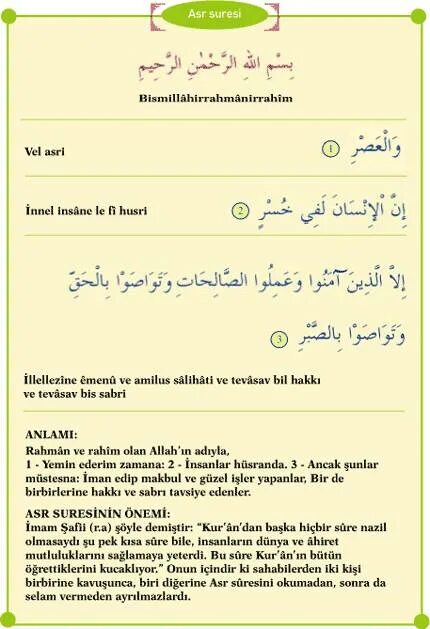 Asr suresi
بِسْمِ اللهِ الرَّحْمٰنِ الرَّحِيمِ
Bismillâhirrahmânirrahîm
وَالْعَصْرِ 1
Vel asri
اِنَّ الْاِنْسَانَ لَفِي خُسْرٍ 2
İnnel insâne le fî husri
اِلاَّ الَّذِينَ آمَنُوا وَعَمِلُوا الصَّالِحَاتِ وَتَوَاصَوْا بِالْحَقِّ
وَتَوَاصَوْا بِالصَّبْرِ 3
İllellezîne êmenû ve amilus sâlihâti ve tevâsav bil hakkı
ve tevâsav bis sabri
ANLAMI:
Rahmân ve rahîm olan Allah'ın adıyla,
1 - Yemin ederim zamana: 2 - İnsanlar hüsranda. 3 - Ancak şunlar
müstesna: İman edip makbul ve güzel işler yapanlar, Bir de
birbirlerine hakkı ve sabrı tavsiye edenler.
ASR SURESİNİN ÖNEMİ:
İmam Şafii (r.a) şöyle demiştir: “Kur'ân'dan başka hiçbir sûre nazil
olmasaydı şu pek kısa sûre bile, insanların dünya ve âhiret
mutluluklarını sağlamaya yeterdi. Bu sûre Kur'ân'ın bütün
öğrettiklerini kucaklıyor.” Onun içindir ki sahabilerden iki kişi
birbirine kavuşunca, biri diğerine Asr sûresini okumadan, sonra da
selam vermeden ayrılmazlardı.